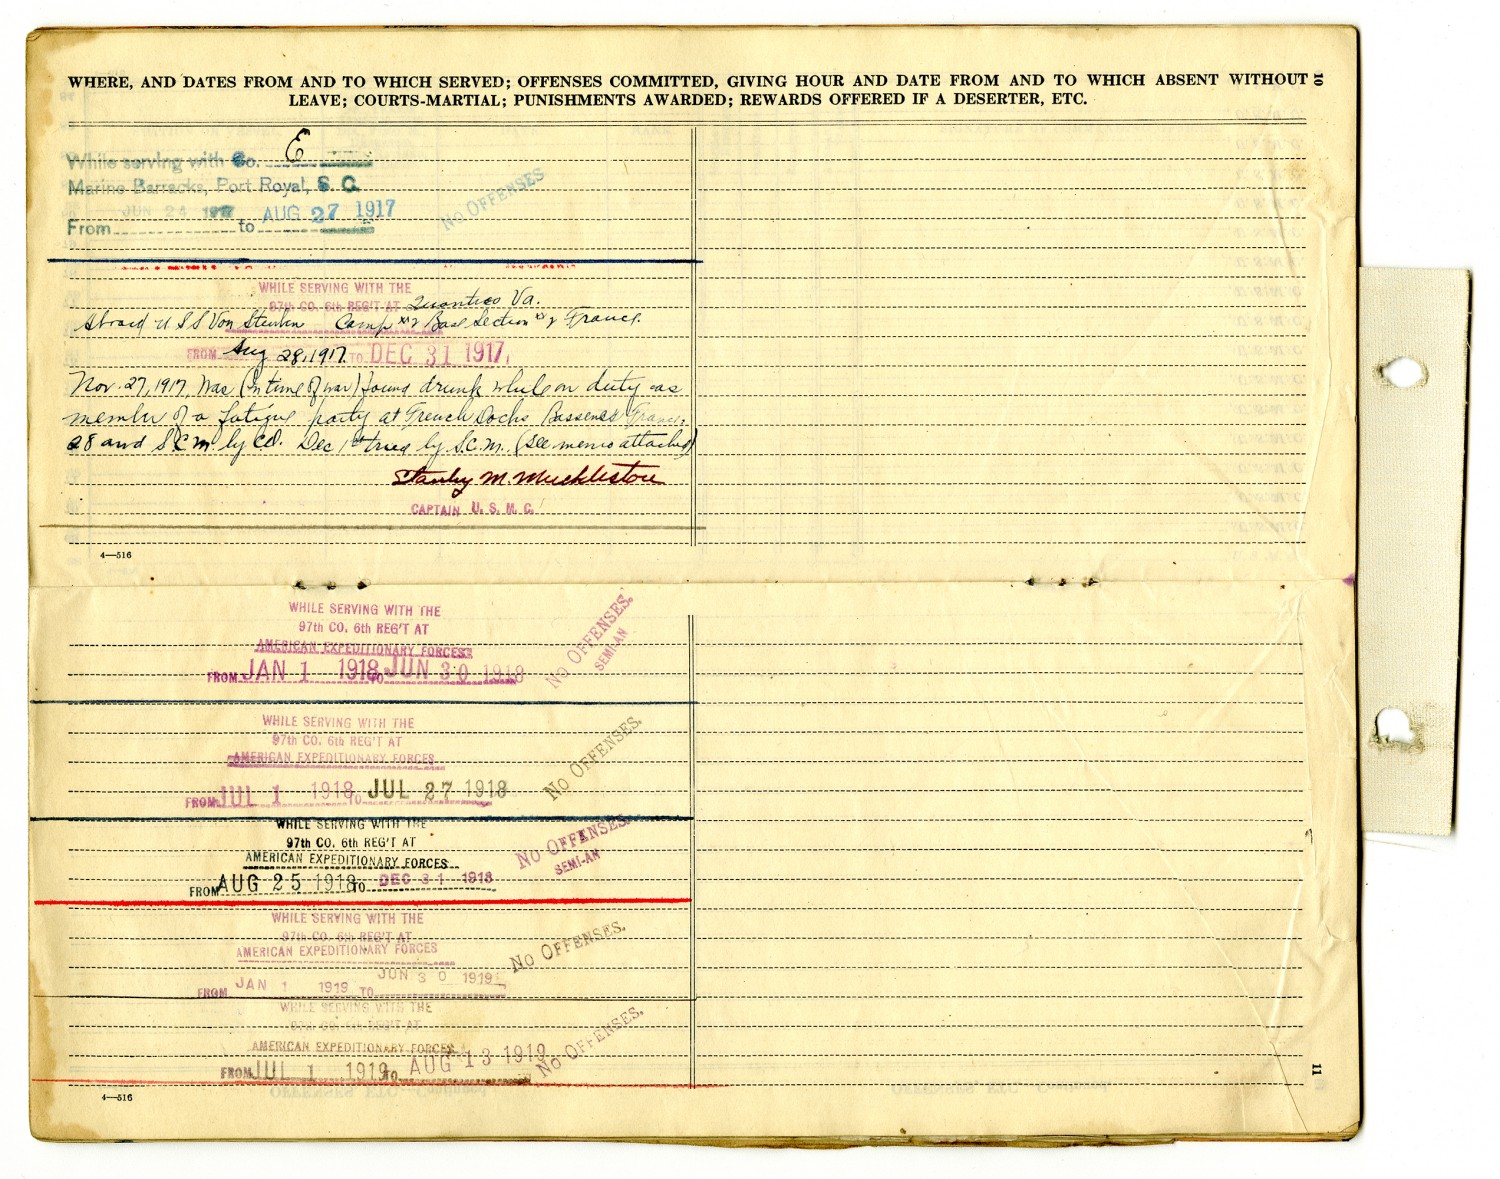 WHERE, AND DATES FROM AND TO WHICH SERVED; OFFENSES COMMITTED, GIVING HOUR AND DATE FROM AND TO WHICH ABSENT WITHOUT
LEAVE; COURTS-MARTIAL; PUNISHMENTS AWARDED; REWARDS OFFERED IF A DESERTER, ETC.
10
While serving with Co. E
Marine Barracks, Port Royal, S. C.
From JUN 24 1917 to AUG 27 1917
NO OFFENSES
WHILE SERVING WITH THE
97th CO. 6th REG'T AT Quantico Va.
Aboard U S S Von Steuben Camp Base Section France.
FROM Aug 28, 1917. TO DEC 31 1917,
Nov. 27, 1917, Was (In time of war) found drunk while on duty as
member of a fatigue party at French Docks Bassens France,
28 and S.C.M. by CO. Dec 1st tried by S.C.M. (see memo attached)
Stanley M. Muckleston
CAPTAIN U. S. M. C.
4—516
WHILE SERVING WITH THE
97th CO. 6th REG'T AT
AMERICAN EXPEDITIONARY FORCES
FROM JAN 1 1918 TO JUN 30 1918
NO OFFENSES.
SEMI-AN
WHILE SERVING WITH THE
97th CO. 6th REG'T AT
AMERICAN EXPEDITIONARY FORCES
FROM JUL 1 1918 TO JUL 27 1918
NO OFFENSES.
WHILE SERVING WITH THE
97th CO. 6th REG'T AT
AMERICAN EXPEDITIONARY FORCES
FROM AUG 25 1918 TO DEC 31 1918
NO OFFENSES.
SEMI-AN
WHILE SERVING WITH THE
97th CO. 6th REG'T AT
AMERICAN EXPEDITIONARY FORCES
FROM JAN 1 1919 TO JUN 30 1919
NO OFFENSES.
WHILE SERVING WITH THE
97th CO. 6th REG'T AT
AMERICAN EXPEDITIONARY FORCES
FROM JUL 1 1919 TO AUG 13 1919
NO OFFENSES.
11
4—516